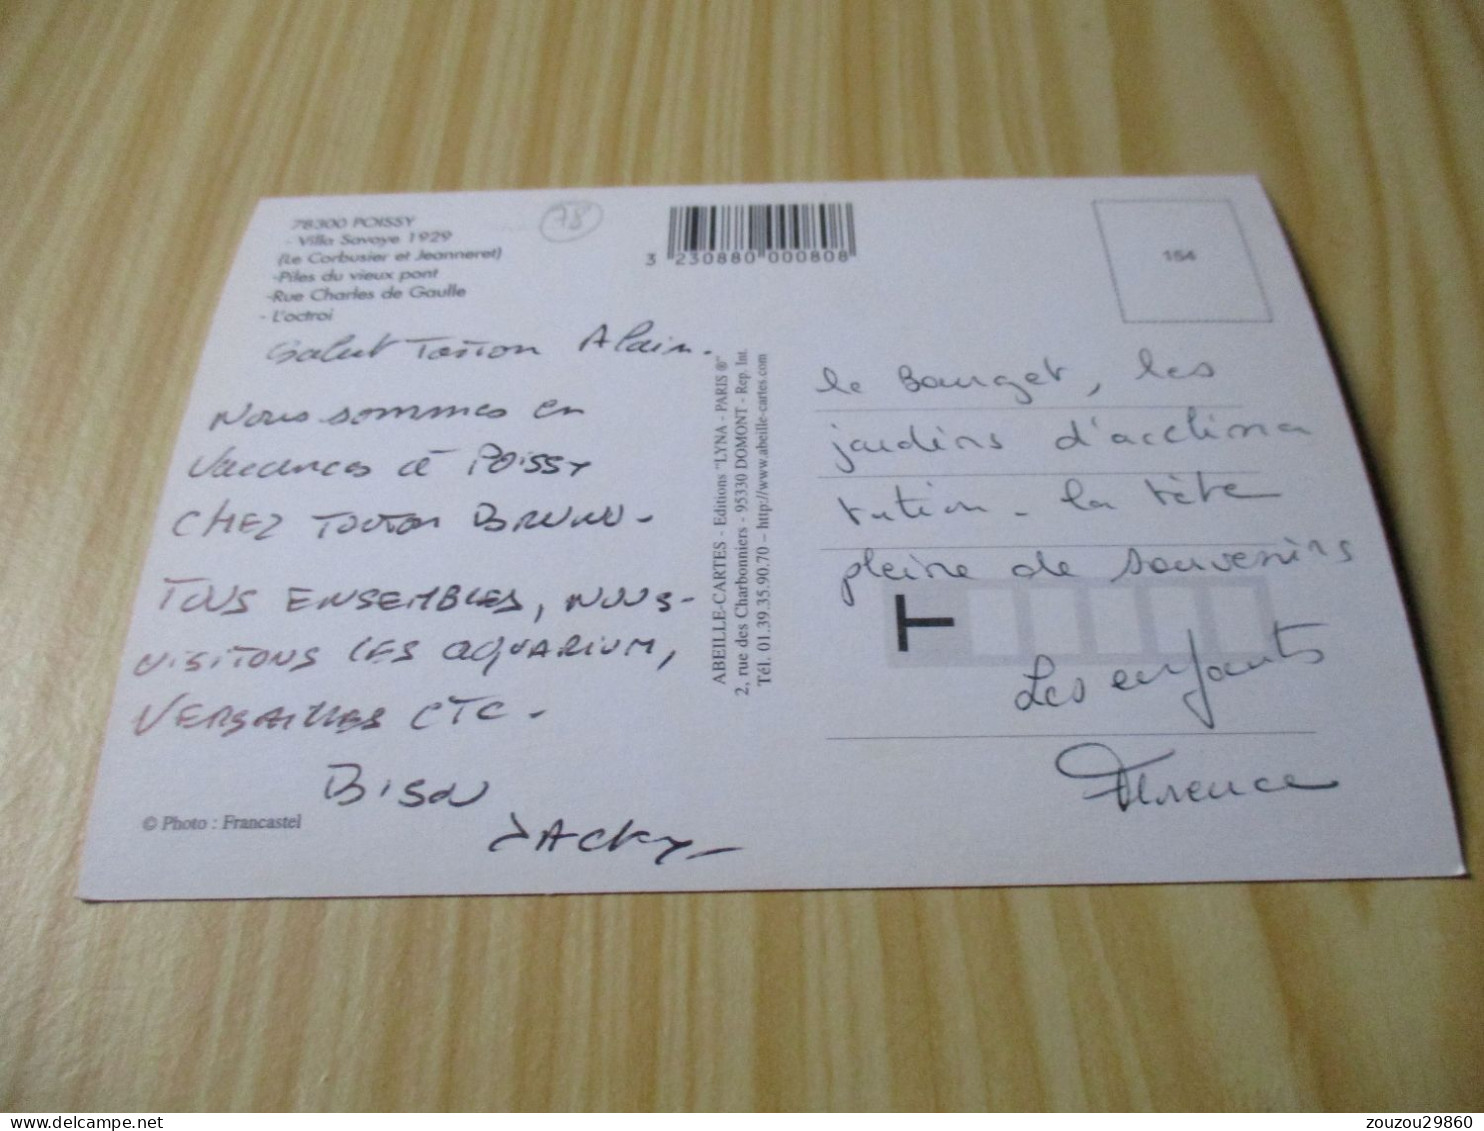 78300 POISSY
- Villa Savoye 1929
(Le Corbusier et Jeanneret)
-Piles du vieux pont
-Rue Charles de Gaulle
- L'octroi
78
3 230880 000808
154
Salut Tonton Alain.
Nous sommes en
vacances à POISSY
CHEZ TONTON BRUNO-
TOUS ENSEMBLES, NOUS-
VISITONS LES AQUARIUM,
VERSAILLES ETC-
BISOU
JACKY-
© Photo : Francastel
ABEILLE-CARTES - Editions "LYNA - PARIS ®"
2, rue des Charbonniers - 95330 DOMONT - Rep. Int.
Tél. 01.39.35.90.70 – http://www.abeille-cartes.com
le Bourget, les
jardins d'acclima
tation - la tête
pleine de souvenirs
T
Les enfants
Florence
zouzou29860